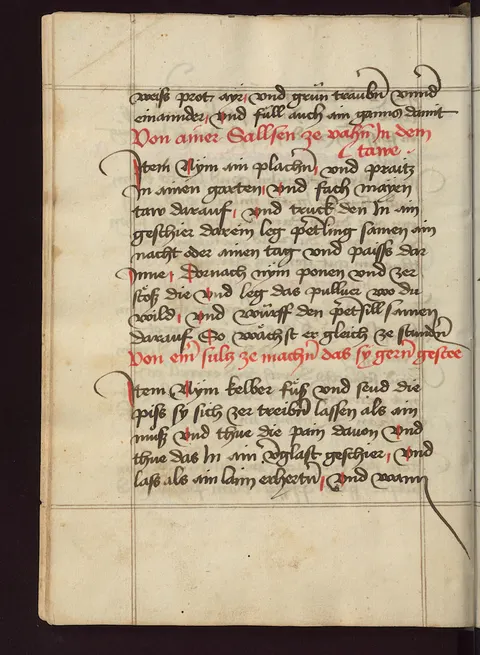 weiss prot ayr, vnd grün traubn̄ vnnd
einainnder, vnd füll auch ain ganns damit
Von ainer Sallsen ze vahn̄ In dem
tawe.
Item Nÿm ain plachn̄, vnd praitz
In ainen garten, vnd fach mayen
taw darauf, vnd truck den In ain
geschier darein leg petling samen ain
nacht oder ainen tag vnd paiss dar
Inne, Dornach nÿm ponen vnd zer
stöß die vnd leg das pulluer wo du
wild, vnd würff den petsill samen
darauf So wächst er gleich ze stundn̄
Von ein̄ sultz ze machn̄ das sy gern̄ gestee
Item Nÿm kelber füß vnd seud die
piss sy sich zer treibn̄ lassen als ain
muß vnd thue die pain dauon vnd
thue das In ain vglast geschier, vnd
lass als ain laim erhertn̄, vnd wann